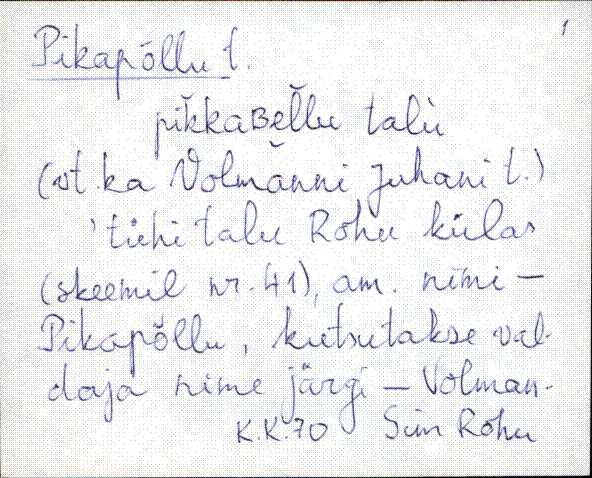 1
Pikapõllu t.
pìkkaʙeĺ̆lu talù
(vt. ka Volmănni Juhani t.)
'tühi talu Rohu külas
(skeemil nr. 41), am. nimi –
Pikapõllu, kutsutakse val-
daja nime järgi – Volman-
K.K. 70 Sim Rohu